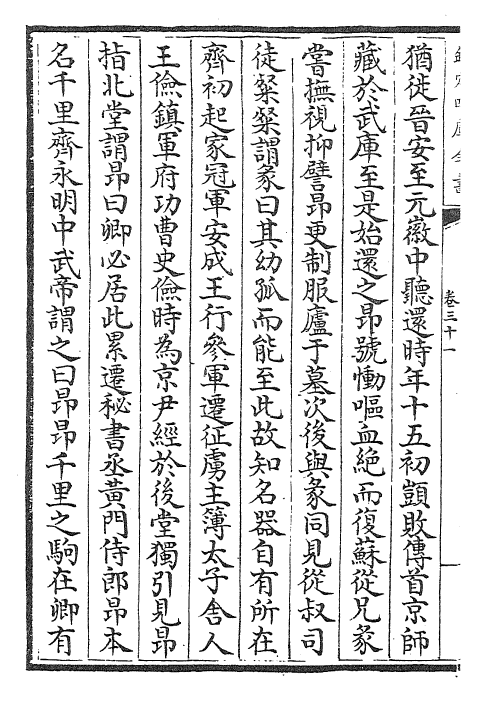 猶徙晉安至元徽中聽還時年十五初顗敗傳首京師
藏於武庫至是始還之昂號慟嘔血絶而復蘇從兄彖
嘗撫視抑譬昂更制服廬于墓次後與彖同見從叔司
徒粲粲謂彖曰其幼孤而能至此故知名器自有所在
齊初起家冠軍安成王行參軍遷征虜主簿太子舍人
王儉鎮軍府功曹史儉時為京尹經於後堂獨引見昂
指北堂謂昂曰卿必居此累遷秘書丞黃門侍郎昂本
名千里齊永明中武帝謂之曰昂昂千里之駒在卿有
卷三十一